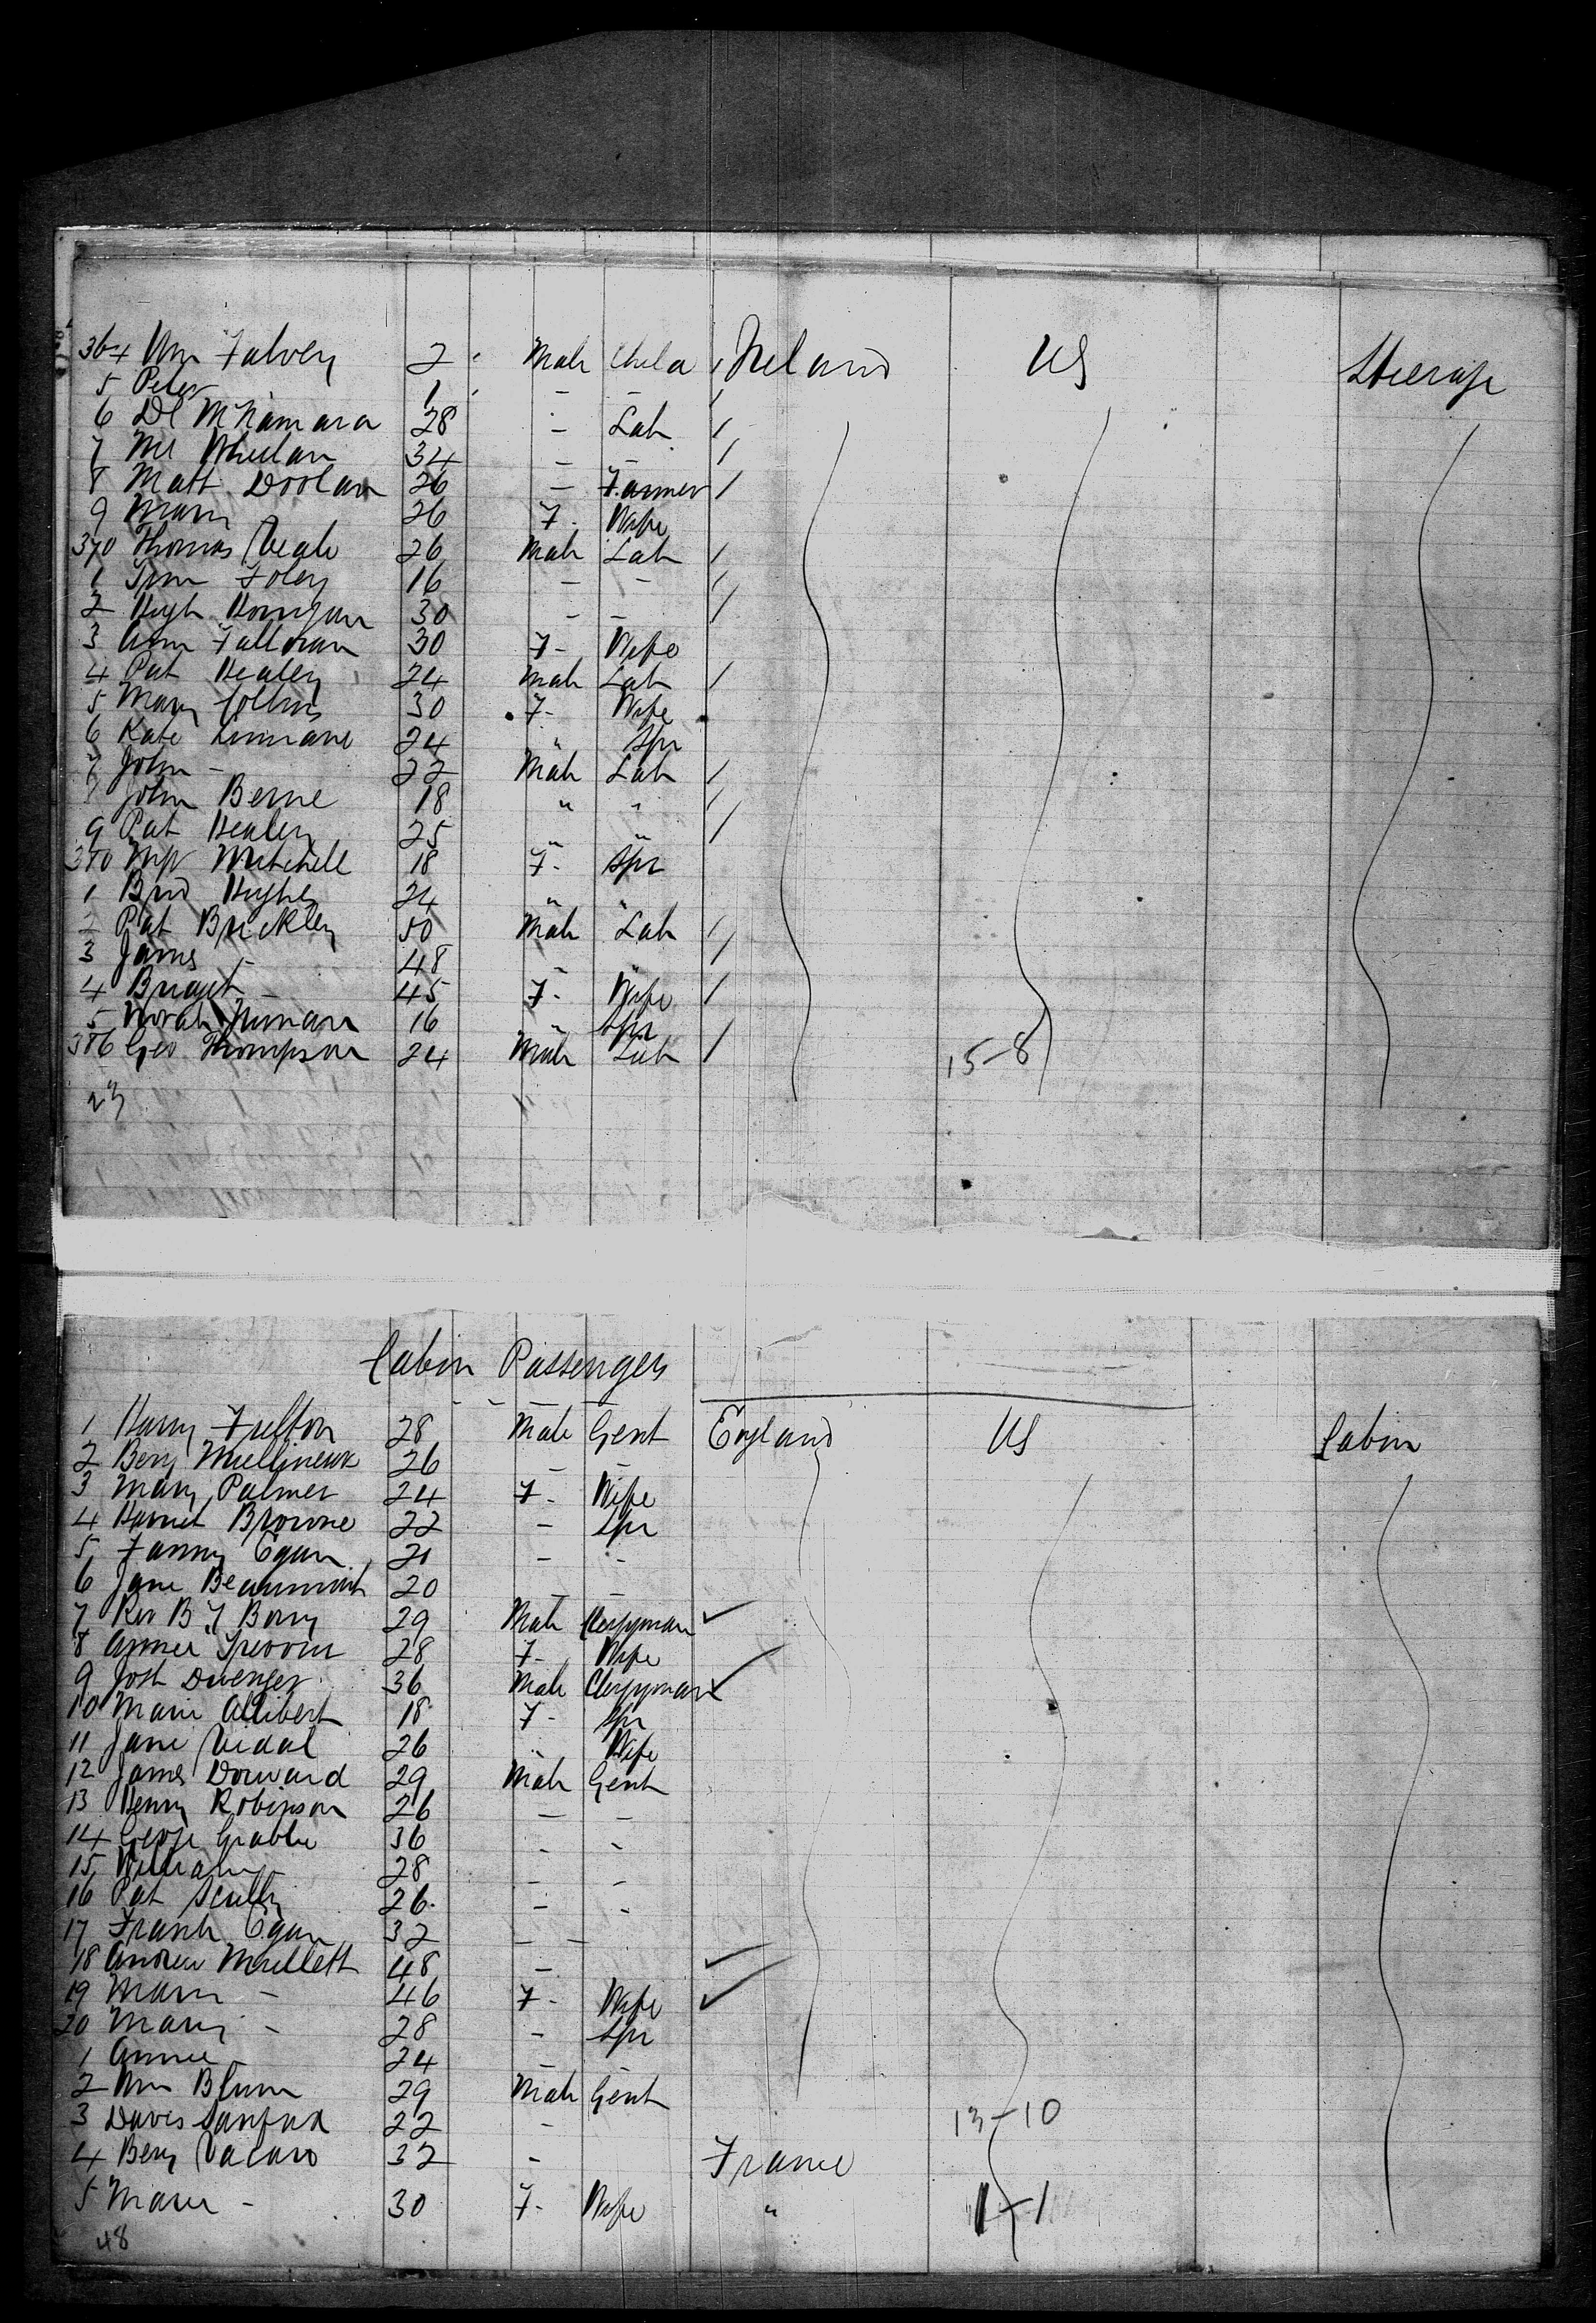 364 Wm Falvey 2 Male Child Ireland US Steerage
5 Peter 1 - -
6 Dl McNamara 28 - Lab
7 Ml Whelan 34 - -
8 Matt Doolan 26 - Farmer
9 Mary 26 F- Wife
370 Thomas Veale 26 Male Lab
1 Foley 16 - -
2 Hugh Horrigan 30 - -
3 Ann Falloran 30 F- Wife
4 Pat Healey 24 Male Lab
5 Mary Collins 30 F- Wife
6 Kate Linnane 24 " Spr
7 John - 22 Male Lab
8 John Berne 18 " "
9 Pat Healey 25 " "
380 Mitchell 18 F- Spr
1 Brid Hughes 24 " "
2 Pat Brickley 50 Male Lab
3 James - 48 - "
4 Bridget - 45 F- Wife
5 Norah 16 " Spr
386 Geo Thompson 24 Male Lab 15-8
23
Cabin Passengers
1 Harry Fulton 28 Male Gent England US Cabin
2 Benj Mullineux 26 - -
3 Mary Palmer 24 F- Wife
4 Harriet Browne 22 - Spr
5 Fanny Egan 21 - -
6 Jane Beaumont 20 - -
7 Rev B F 29 Male Clergyman
8 Annie 28 F- Wife
9 Josh Dwenger 36 Male Clergyman
10 Marie Allibert 18 F- Spr
11 Jane Vidal 26 " Wife
12 James Dorward 29 Male Gent
13 Henry Robinson 26 - -
14 George Grabbe 36 - -
15 William - 28 - -
16 Pat Scully 26 - -
17 Frank Egan 32 - -
18 Andrew Mullett 48 -
19 Mary - 46 F- Wife
20 Mary - 28 - Spr
1 Annie - 24 -
2 Wm Blum 29 Male Gent
3 Davis Sanford 22 - 13-10
4 Benj Vacaro 32 - France
5 Marie - 30 F- Wife " 1-1
48